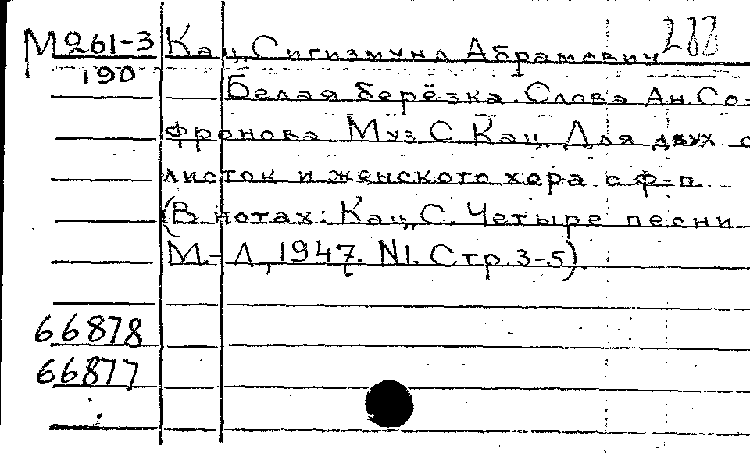 М 261-3 Кац, Сигизмунд Абрамович
190
Белая берёзка. Слова Ан. Со-
фронова. Муз. С. Кац. Для двух со
листок и женского хора с ф-п.
(В нотах: Кац, С. Четыре песни
М.-Л., 1947. N1. Стр. 3-5).
66878
66877